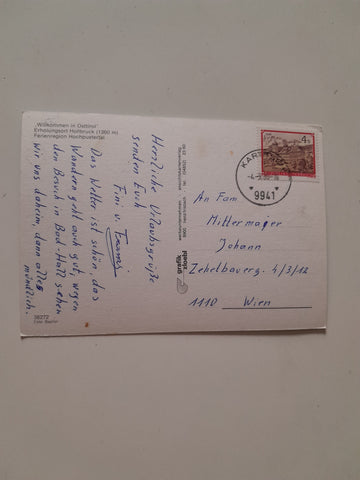 "Willkommen in Osttirol"
Erholungsort Hollbruck (1360 m)
Ferienregion Hochpustertal
Herzliche Urlaubsgrüße
senden Euch
Fini u. Franz
Das Wetter ist schön, das
Wandern geht auch gut, wegen
den Besuch in Bad Hall sehen
wir uns daheim, dann alles
mündlich.
36272
grafik
zloebl
4
KAR
9941
An Fam
Mittermajer
Johann
Zehetbauerg. 4/3/12
1110 Wien